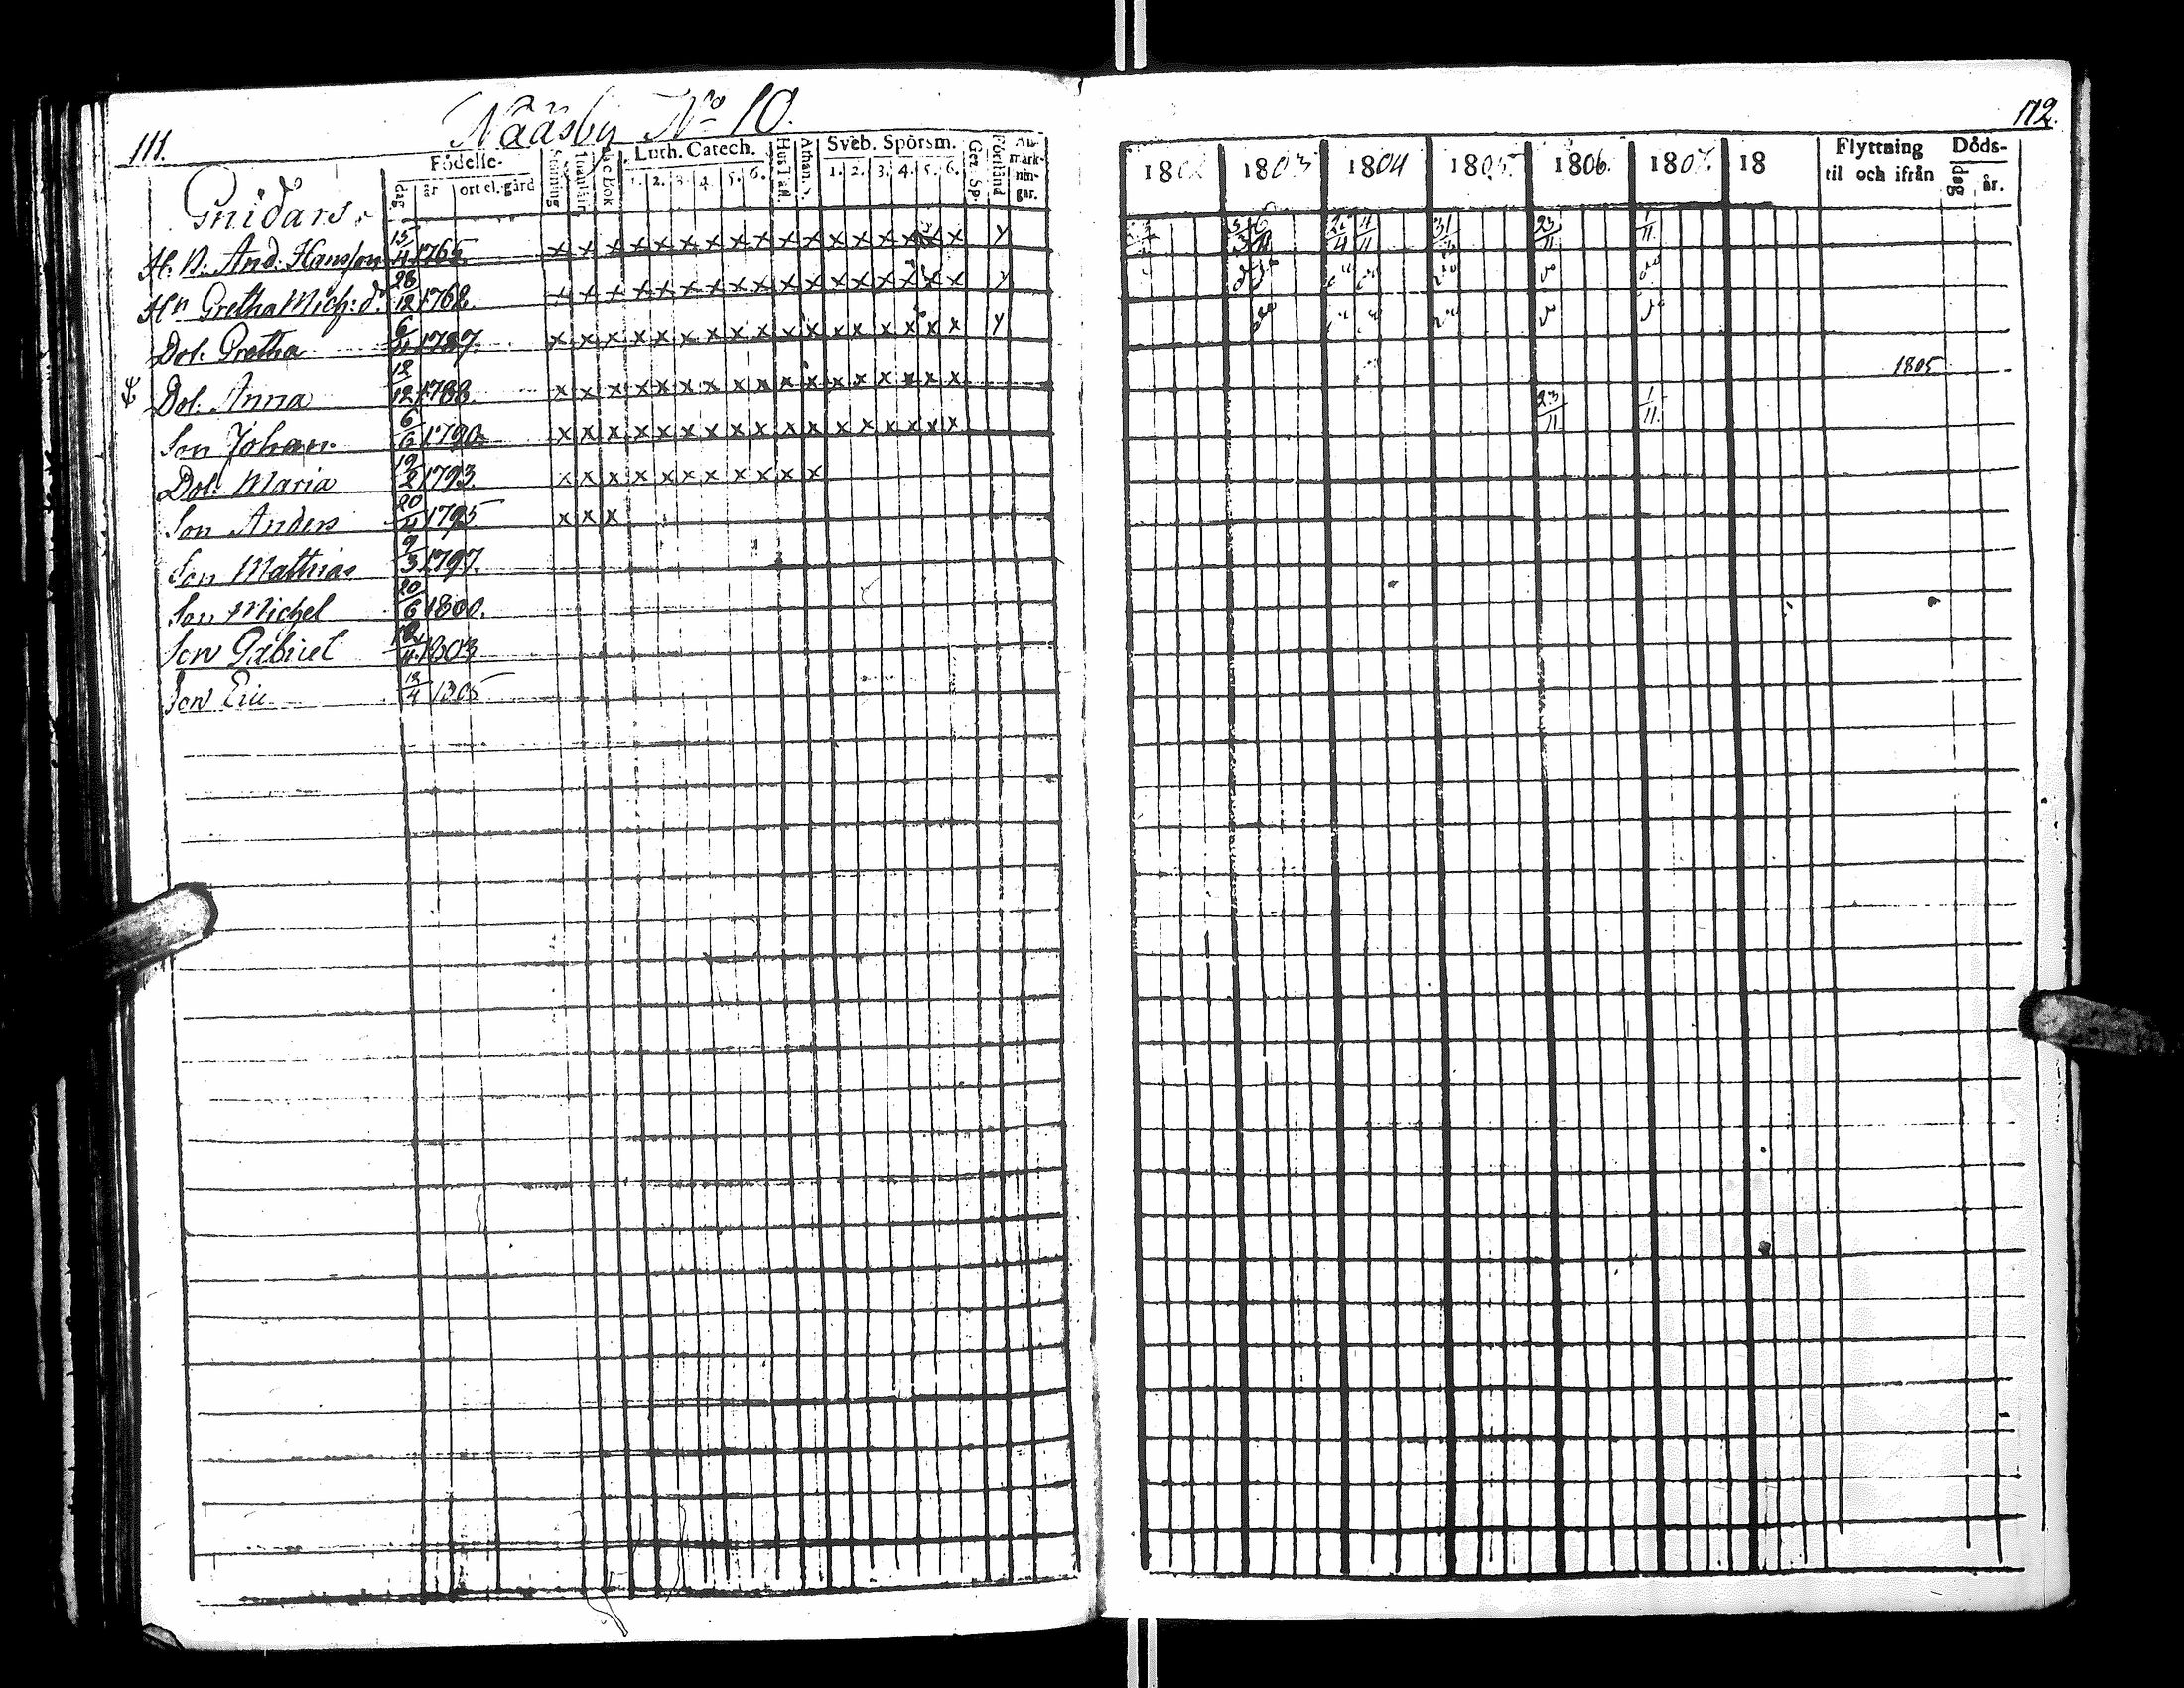 111.
Nääsby No 10.
Födelse-
Luth. Catech.
Sveb. Spörsm.
Gez. Sp.
Förstånd
An-
märk-
nin-
gar.
dag
år
ort el. gård
Hus Tafl.
Athan. S.
1. 2. 3. 4. 5. 6.
1. 2. 3. 4. 5. 6.
Gnidars.
And. Hansson 15/4 1765 x x x x x x x x x x x x x x x x x y
Hu Gretha Mich: dr 28/12 1762 x x x x x x x x x x x x x x x x x y
Dot. Gretha 1787. x x x x x x x x x x x x x x x x x y
Dot. Anna 12/12 1788. x x x x x x x x x x x x x x x x x
Son Johan 6/6 1790 x x x x x x x x x x x x x x x x x
Dot. Maria 19/2 1793. x x x x x x x x x x x
Son Anders 20/4 1795 x x x
Son Mathias 9/3 1797.
Son Michel 20/6 1800.
Son Gabriel 1803
Son Eric 13/4 1805
112.
1802 1803 1804 1805 1806 1807 18
Flyttning
til och ifrån
Döds-
dag
år.
23/11 1/11
1805
23/11 1/11.